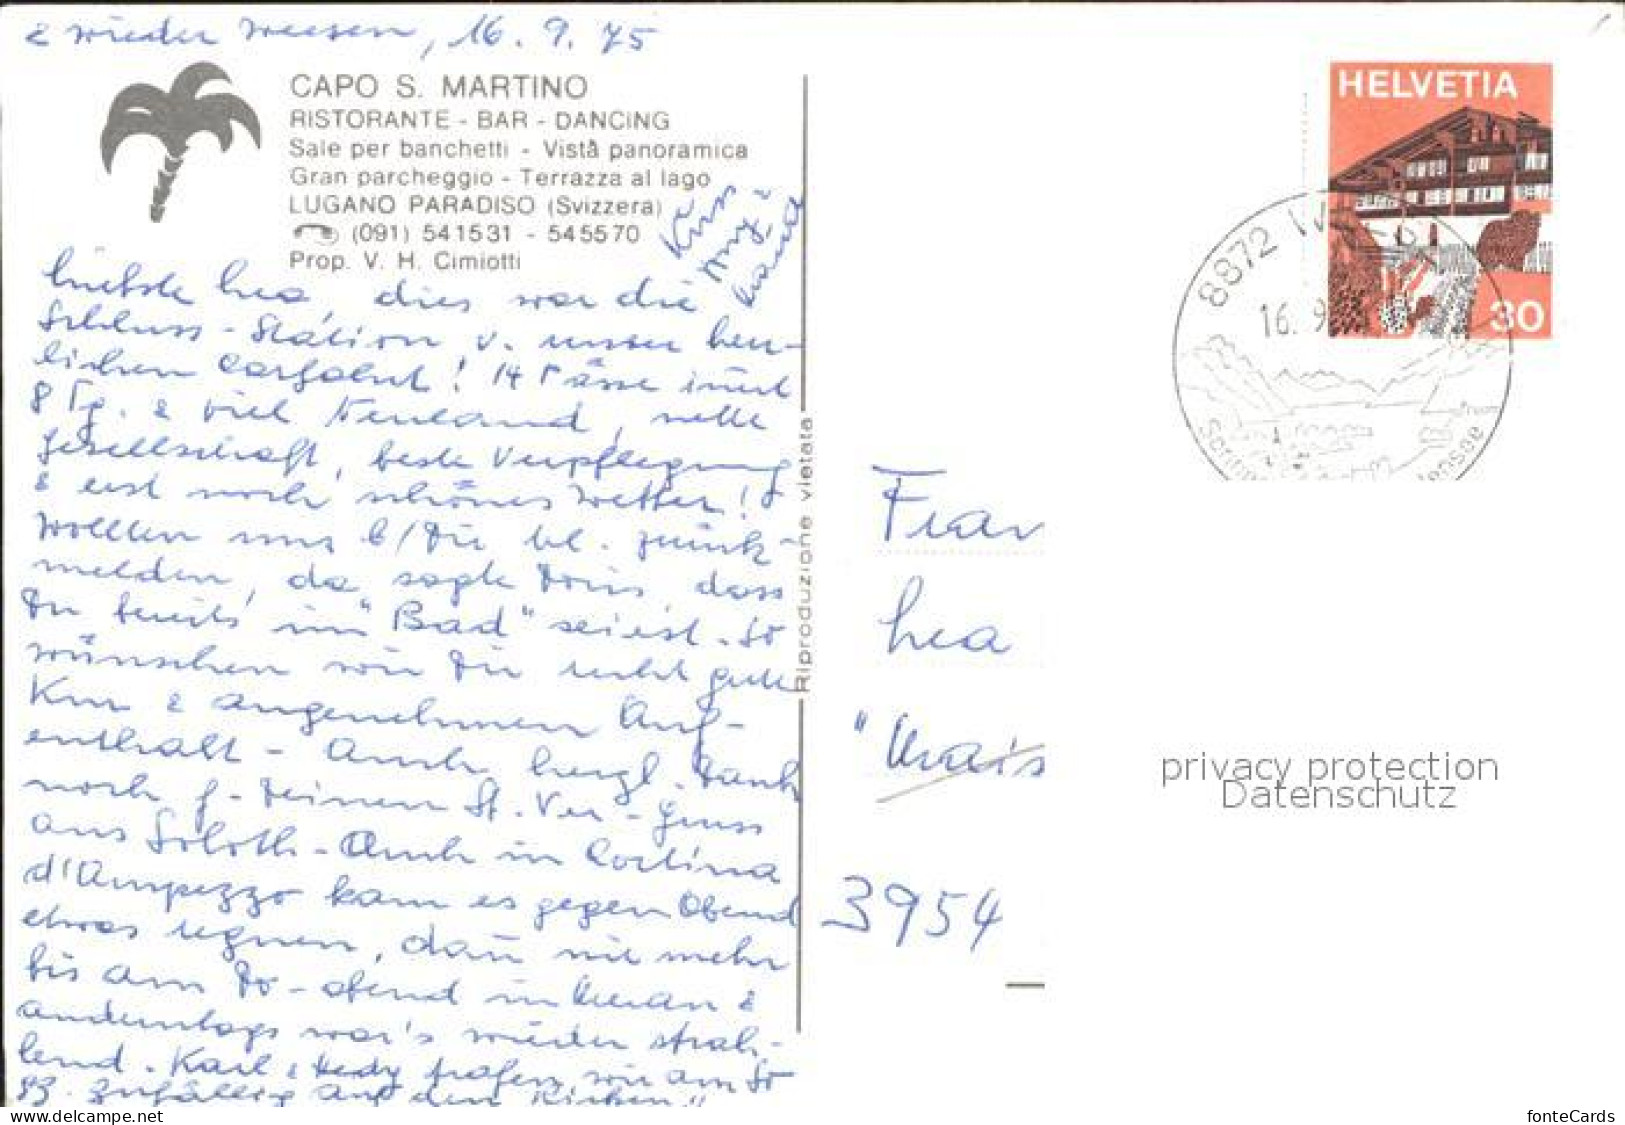 & wieder Weesen, 16. 9. 75
CAPO S. MARTINO
RISTORANTE - BAR - DANCING
Sale per banchetti - Vista panoramica
Gran parcheggio - Terrazza al lago
LUGANO PARADISO (Svizzera)
(091) 541531 - 545570
Prop. V. H. Cimiotti
Kuss
liebste Lea, dies war die
Schluss-Station v. unser herr-
lichen Carfahrt! 14 Pässe innert
8 Tg. & viel Neuland, nette
Gesellschaft, beste Verpflegung
& erst noch schönes Wetter! &
wollten uns b/Dir tel. zurück-
melden, da sagte Doris, dass
Du bereits im "Bad" seiest. So
wünschen wir Dir recht gute
Kur & angenehmen Auf-
enthalt - Auch herzl. Dank
noch f. Deinen St. Ver - Gruss
aus Soloth. - Auch in Cortina
d'Ampezzo kam es gegen Abend
etwas regnen, dann nie mehr
bis am Do-abend in Meran &
anderntags war's wieder strah-
lend. Karl & Hedy trafen wir am So
zufällig auf den Kirchen!!
Riproduzione vietata
HELVETIA
30
8872
16. 9
Frau
Lea
3954
privacy protection
Datenschutz
https://www.ansichtskarten-center.de
fonteCards